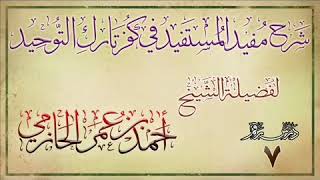 شرح مفيد المستفيد في كفر تارك التوحيد
لفضيلة الشيخ
أحمد بن عمر الحازمي
٧